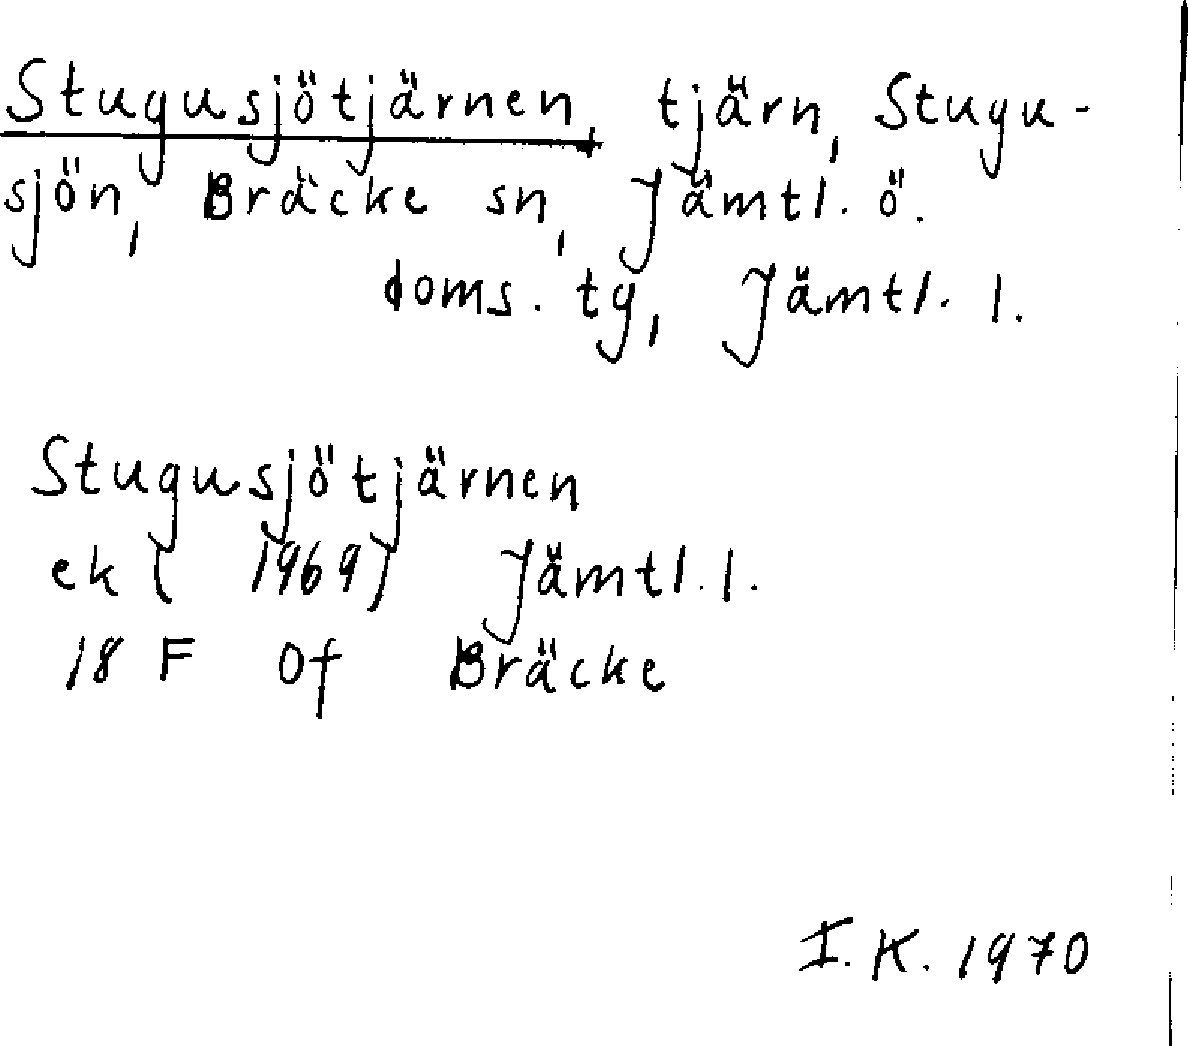 Stugusjötjärnen, tjärn, Stugu-
sjön, Bräcke sn, Jämtl. ö.
doms. tg, Jämtl. l.
Stugusjötjärnen
ek ( 1969) Jämtl. l.
18 F 0f Bräcke
I. K. 1970